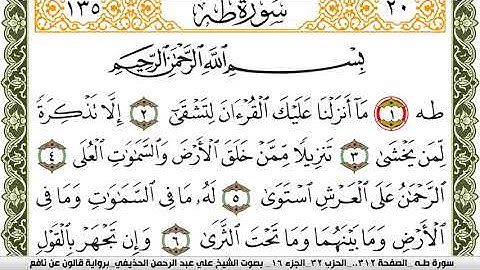 ١٣٥ سورة طه ٢٠
بسم الله الرحمن الرحيم
طه ١ مَا أَنزَلْنَا عَلَيْكَ الْقُرْءَانَ لِتَشْقَىٰ ٢ إِلَّا تَذْكِرَةً
لِمَن يَخْشَىٰ ٣ تَنزِيلًا مِمَّنْ خَلَقَ الْأَرْضَ وَالسَّمَٰوَٰتِ الْعُلَى ٤
الرَّحْمَٰنُ عَلَى الْعَرْشِ اسْتَوَىٰ ٥ لَهُ مَا فِي السَّمَٰوَٰتِ وَمَا فِي
الْأَرْضِ وَمَا بَيْنَهُمَا وَمَا تَحْتَ الثَّرَىٰ ٦ وَإِن تَجْهَرْ بِالْقَوْلِ
سورة طه _ الصفحة ٣١٢..._ الحزب ٣٢_ الجزء ١٦_ بصوت الشيخ علي عبد الرحمن الحذيفي_ برواية قالون عن نافع